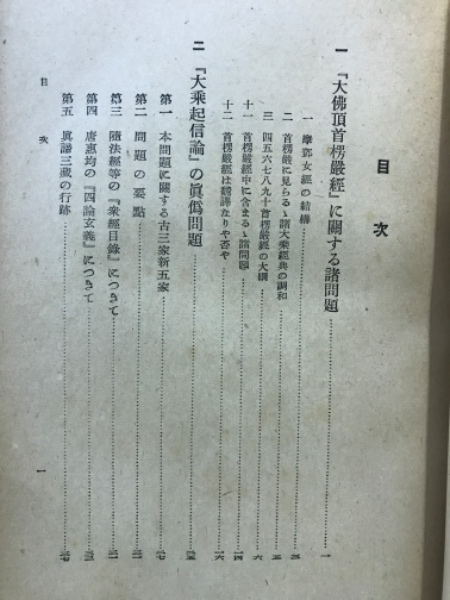 目次
一 『大佛頂首楞嚴經』に關する諸問題 一
一 摩鄧女經の結構 二
二 首楞嚴に見らるゝ諸大乘經典の調和 五
三 四五六七八九十首楞嚴經の大綱 六
十一 首楞嚴經中に含まるゝ諸問題 一四
十二 首楞嚴經は飜譯なりや否や 一六
二 『大乘起信論』の眞僞問題
第一 本問題に關する古三家新五家 一七
第二 問題の要點
第三 隋法經等の『衆經目錄』につきて
第四 唐惠均の『四論玄義』につきて
第五 眞諦三藏の行跡
目次 一